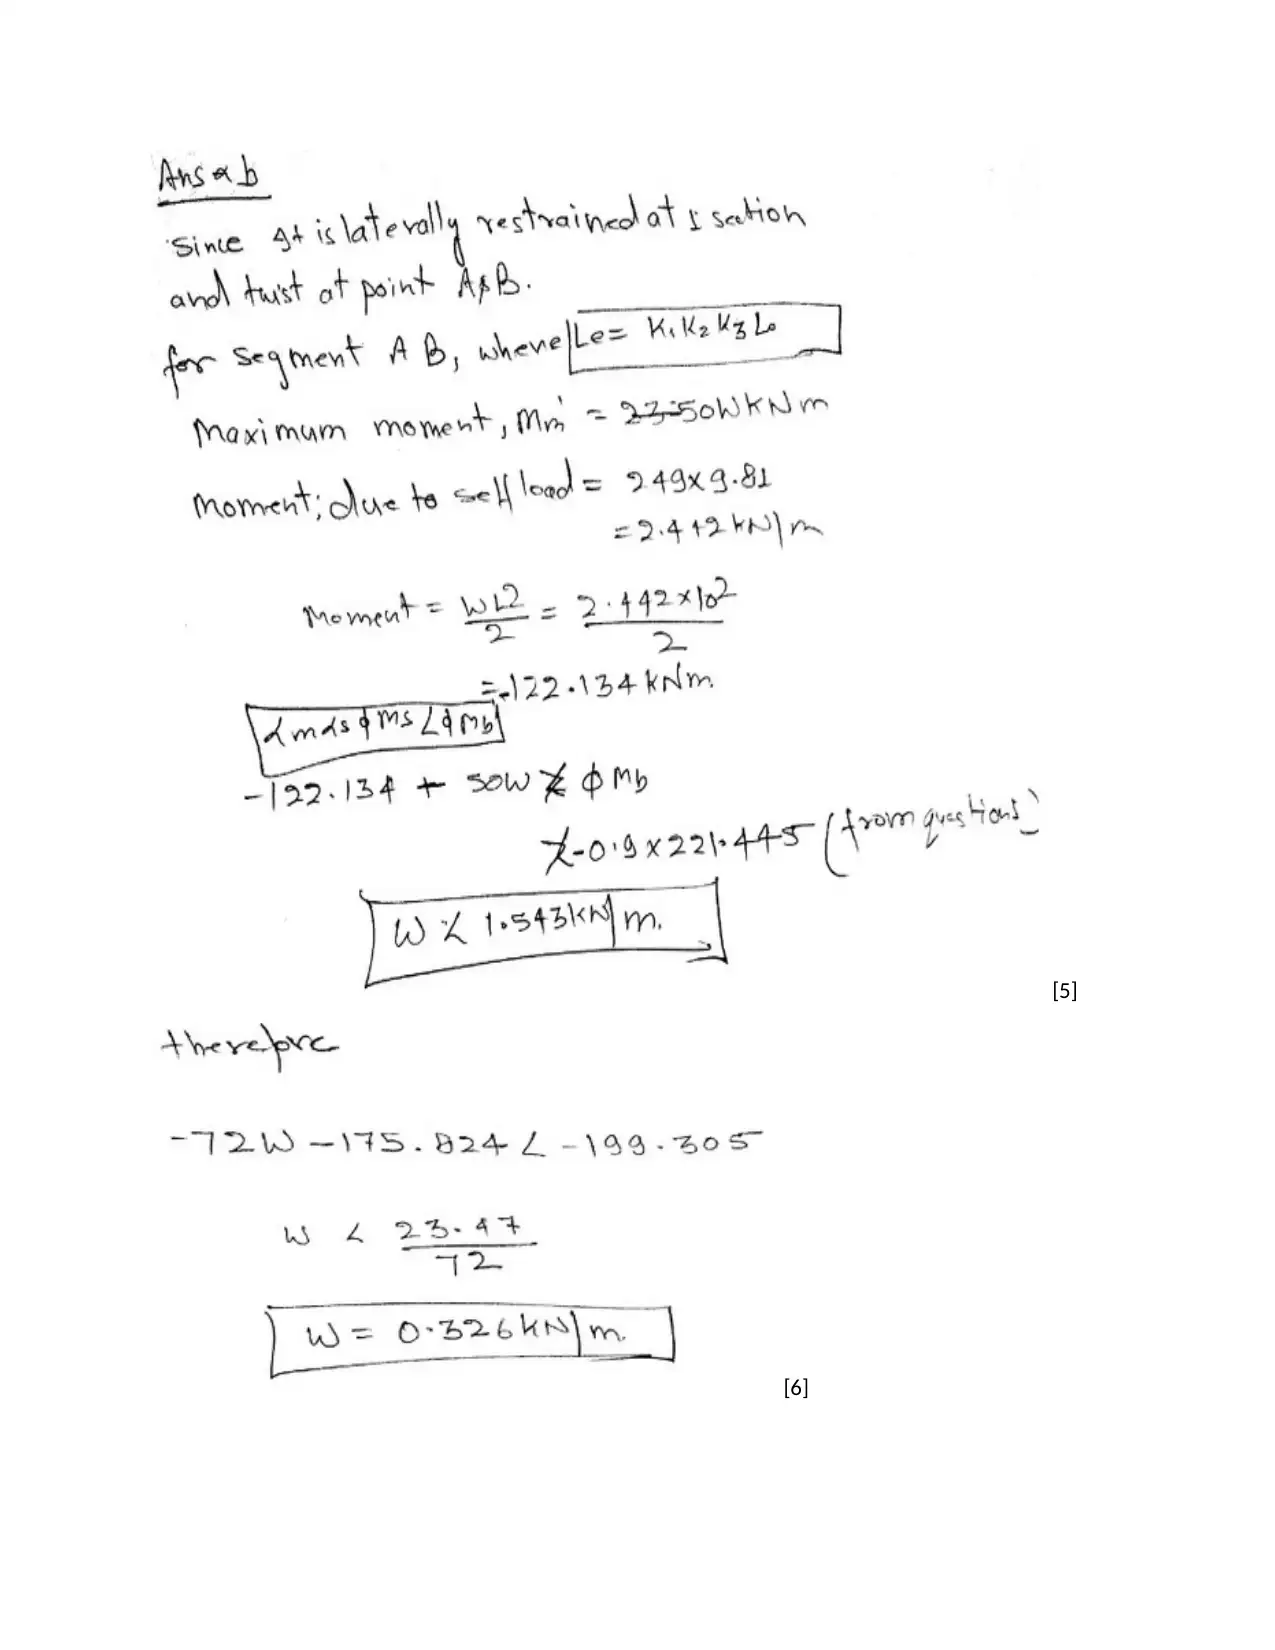 Ans a b
Since It is laterally restrained at I section
and twist at point A & B.
for segment A B, where Le = K₁ K₂ K₃ L₀
Maximum moment, Mm = 50W KN m
Moment; due to self load = 249x9.81
= 2.442 kN/m
Moment = WL²/2 = 2.442x10²/2
= -122.134 kNm.
αmαsϕMs < ϕMb
-122.134 + 50W ≮ ϕ Mb
≮ -0.9 x 221.445 (from questions)
W ≮ 1.543 kN/m.
[5]
therefore
-72W - 175.824 < -199.305
W < 23.47/72
W = 0.326 kN/m.
[6]